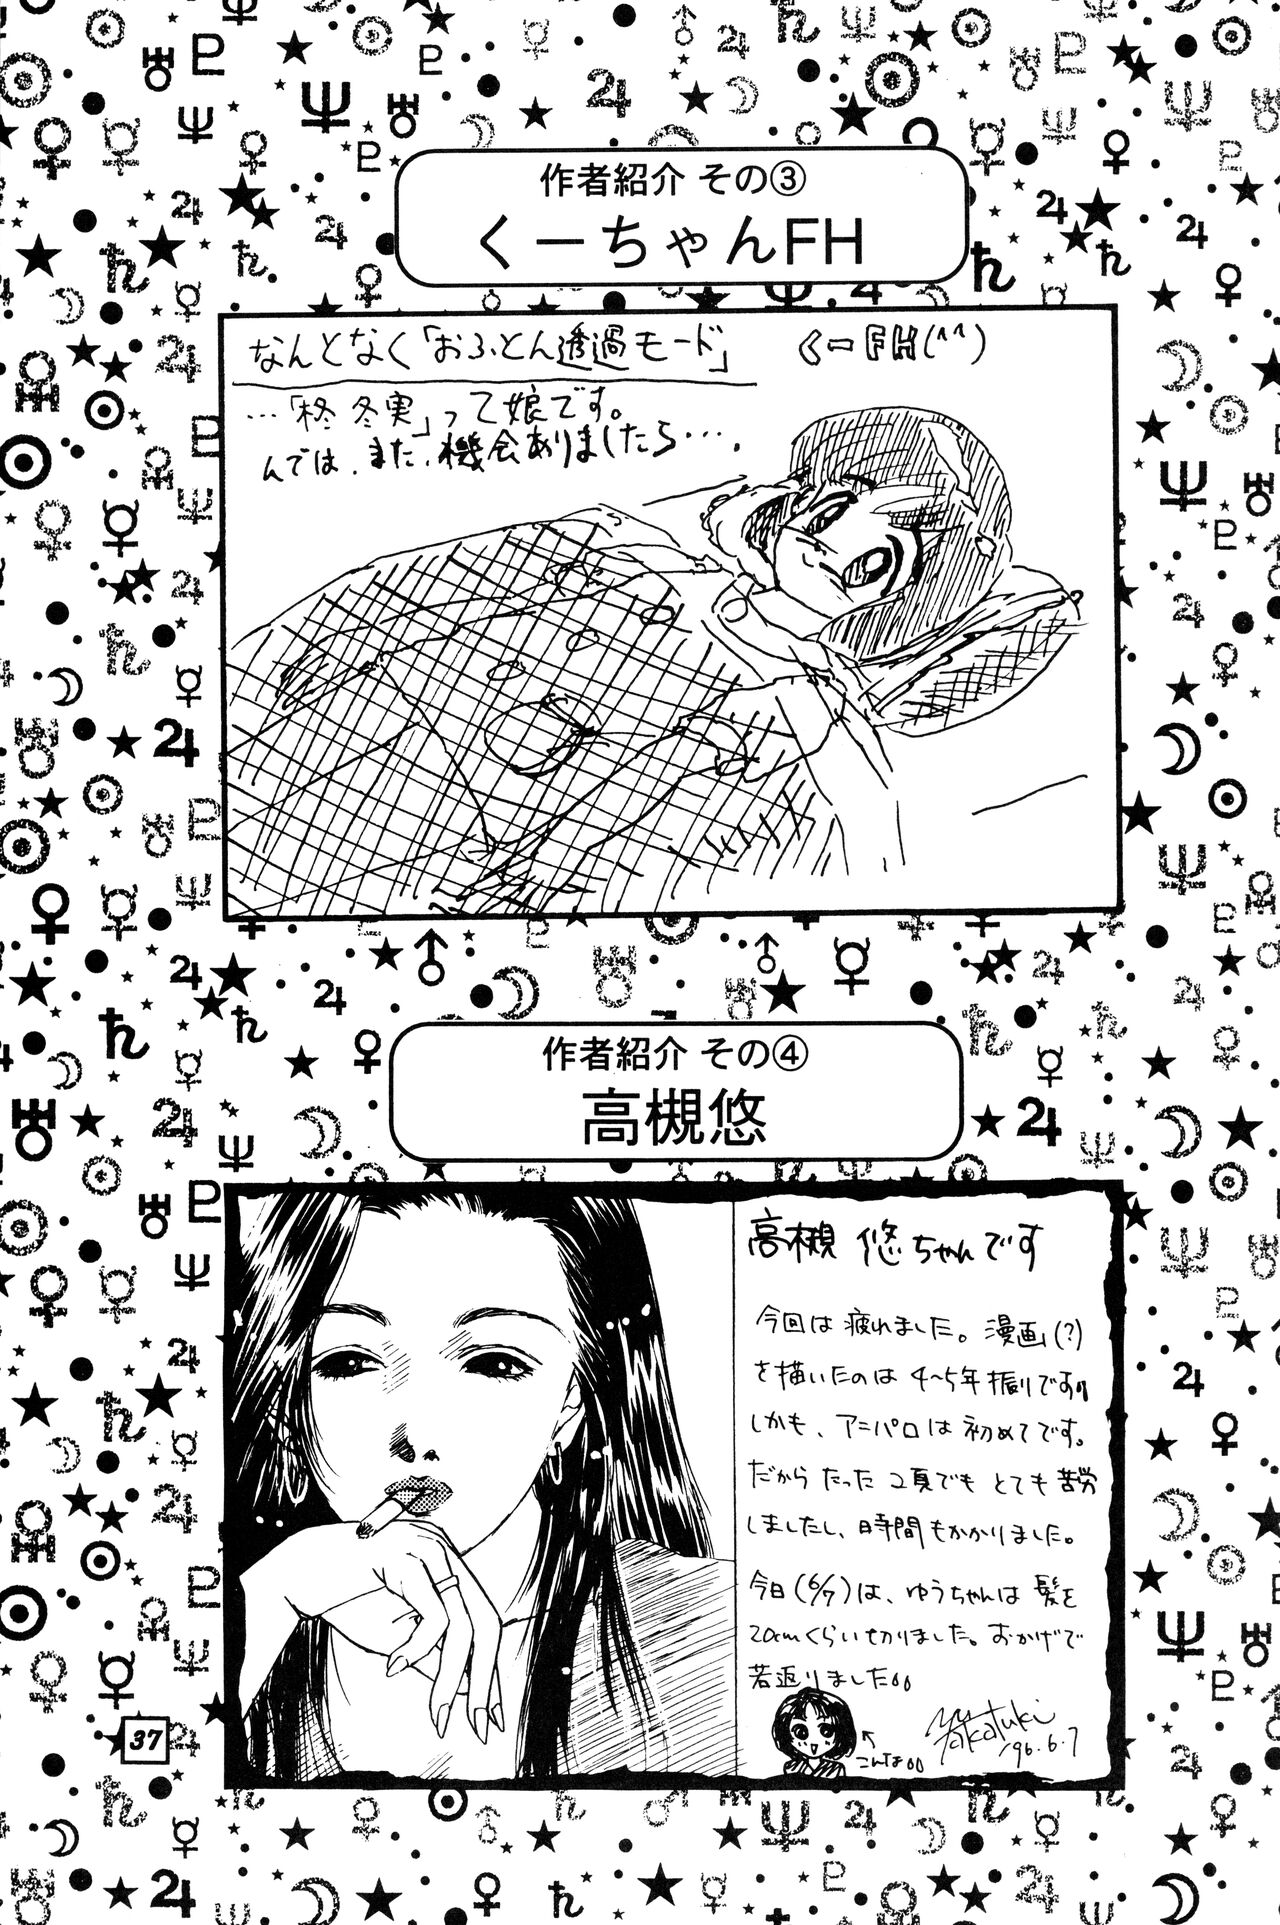 作者紹介 その③
くーちゃんFH
なんとなく「おふとん透過モード」
くーFH(^^)
…「柊 冬実」って娘です。
んでは、また、機会ありましたら…
作者紹介 その④
高槻悠
高槻 悠ちゃんです
今回は疲れました。漫画(?)
を描いたのは4〜5年振りです。
しかも、アニパロは初めてです。
だから たった 2頁でも とても 苦労
しましたし、時間もかかりました。
今日(6/7)は、ゆうちゃんは 髪を
20cmくらい切りました。おかげで
若返りました。
←こんな
Yu Takatuki
'96.6.7
37